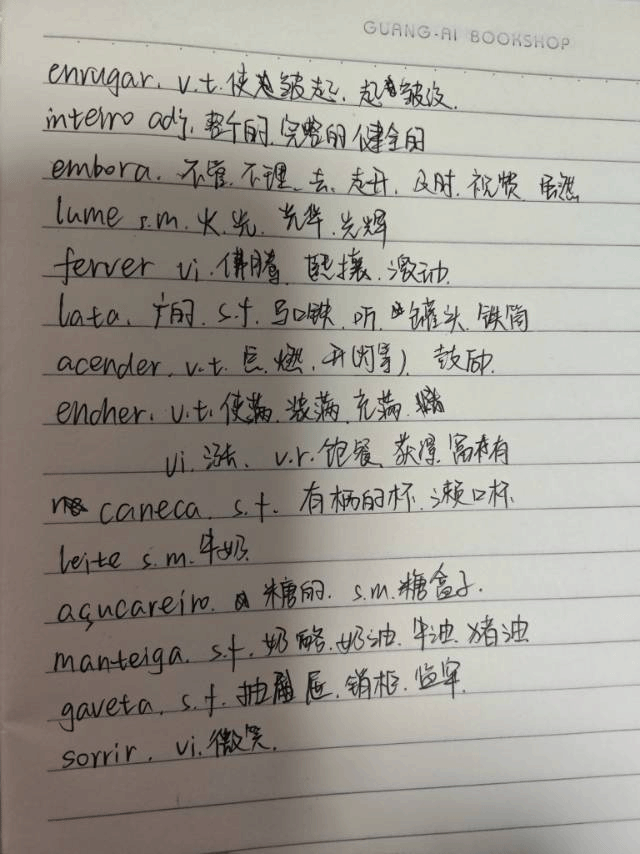 GUANG-AI BOOKSHOP
enrugar. v.t. 使皱起. 起皱纹.
inteiro adj. 整个的. 完整的 健全的
embora. 不管. 不理. 去. 走开. 及时. 祝贺 虽然
lume s.m. 火. 光. 光华. 光辉
ferver vi. 沸腾. 熙攘. 激动.
lata. 的. s.f. 马口铁. 听. 罐头. 铁筒
acender. v.t. 点燃. 开(灯等) 鼓励.
encher. v.t. 使满. 装满. 充满.
vi. 涨. v.r. 饱餐. 获得. 富有
caneca. s.f. 有柄的杯. 漱口杯
leite s.m. 牛奶.
açucareiro. 糖的. s.m. 糖盒子.
manteiga. s.f. 奶酪. 奶油. 牛油. 猪油
gaveta. s.f. 抽屉. 销柜. 监牢.
sorrir. vi. 微笑.